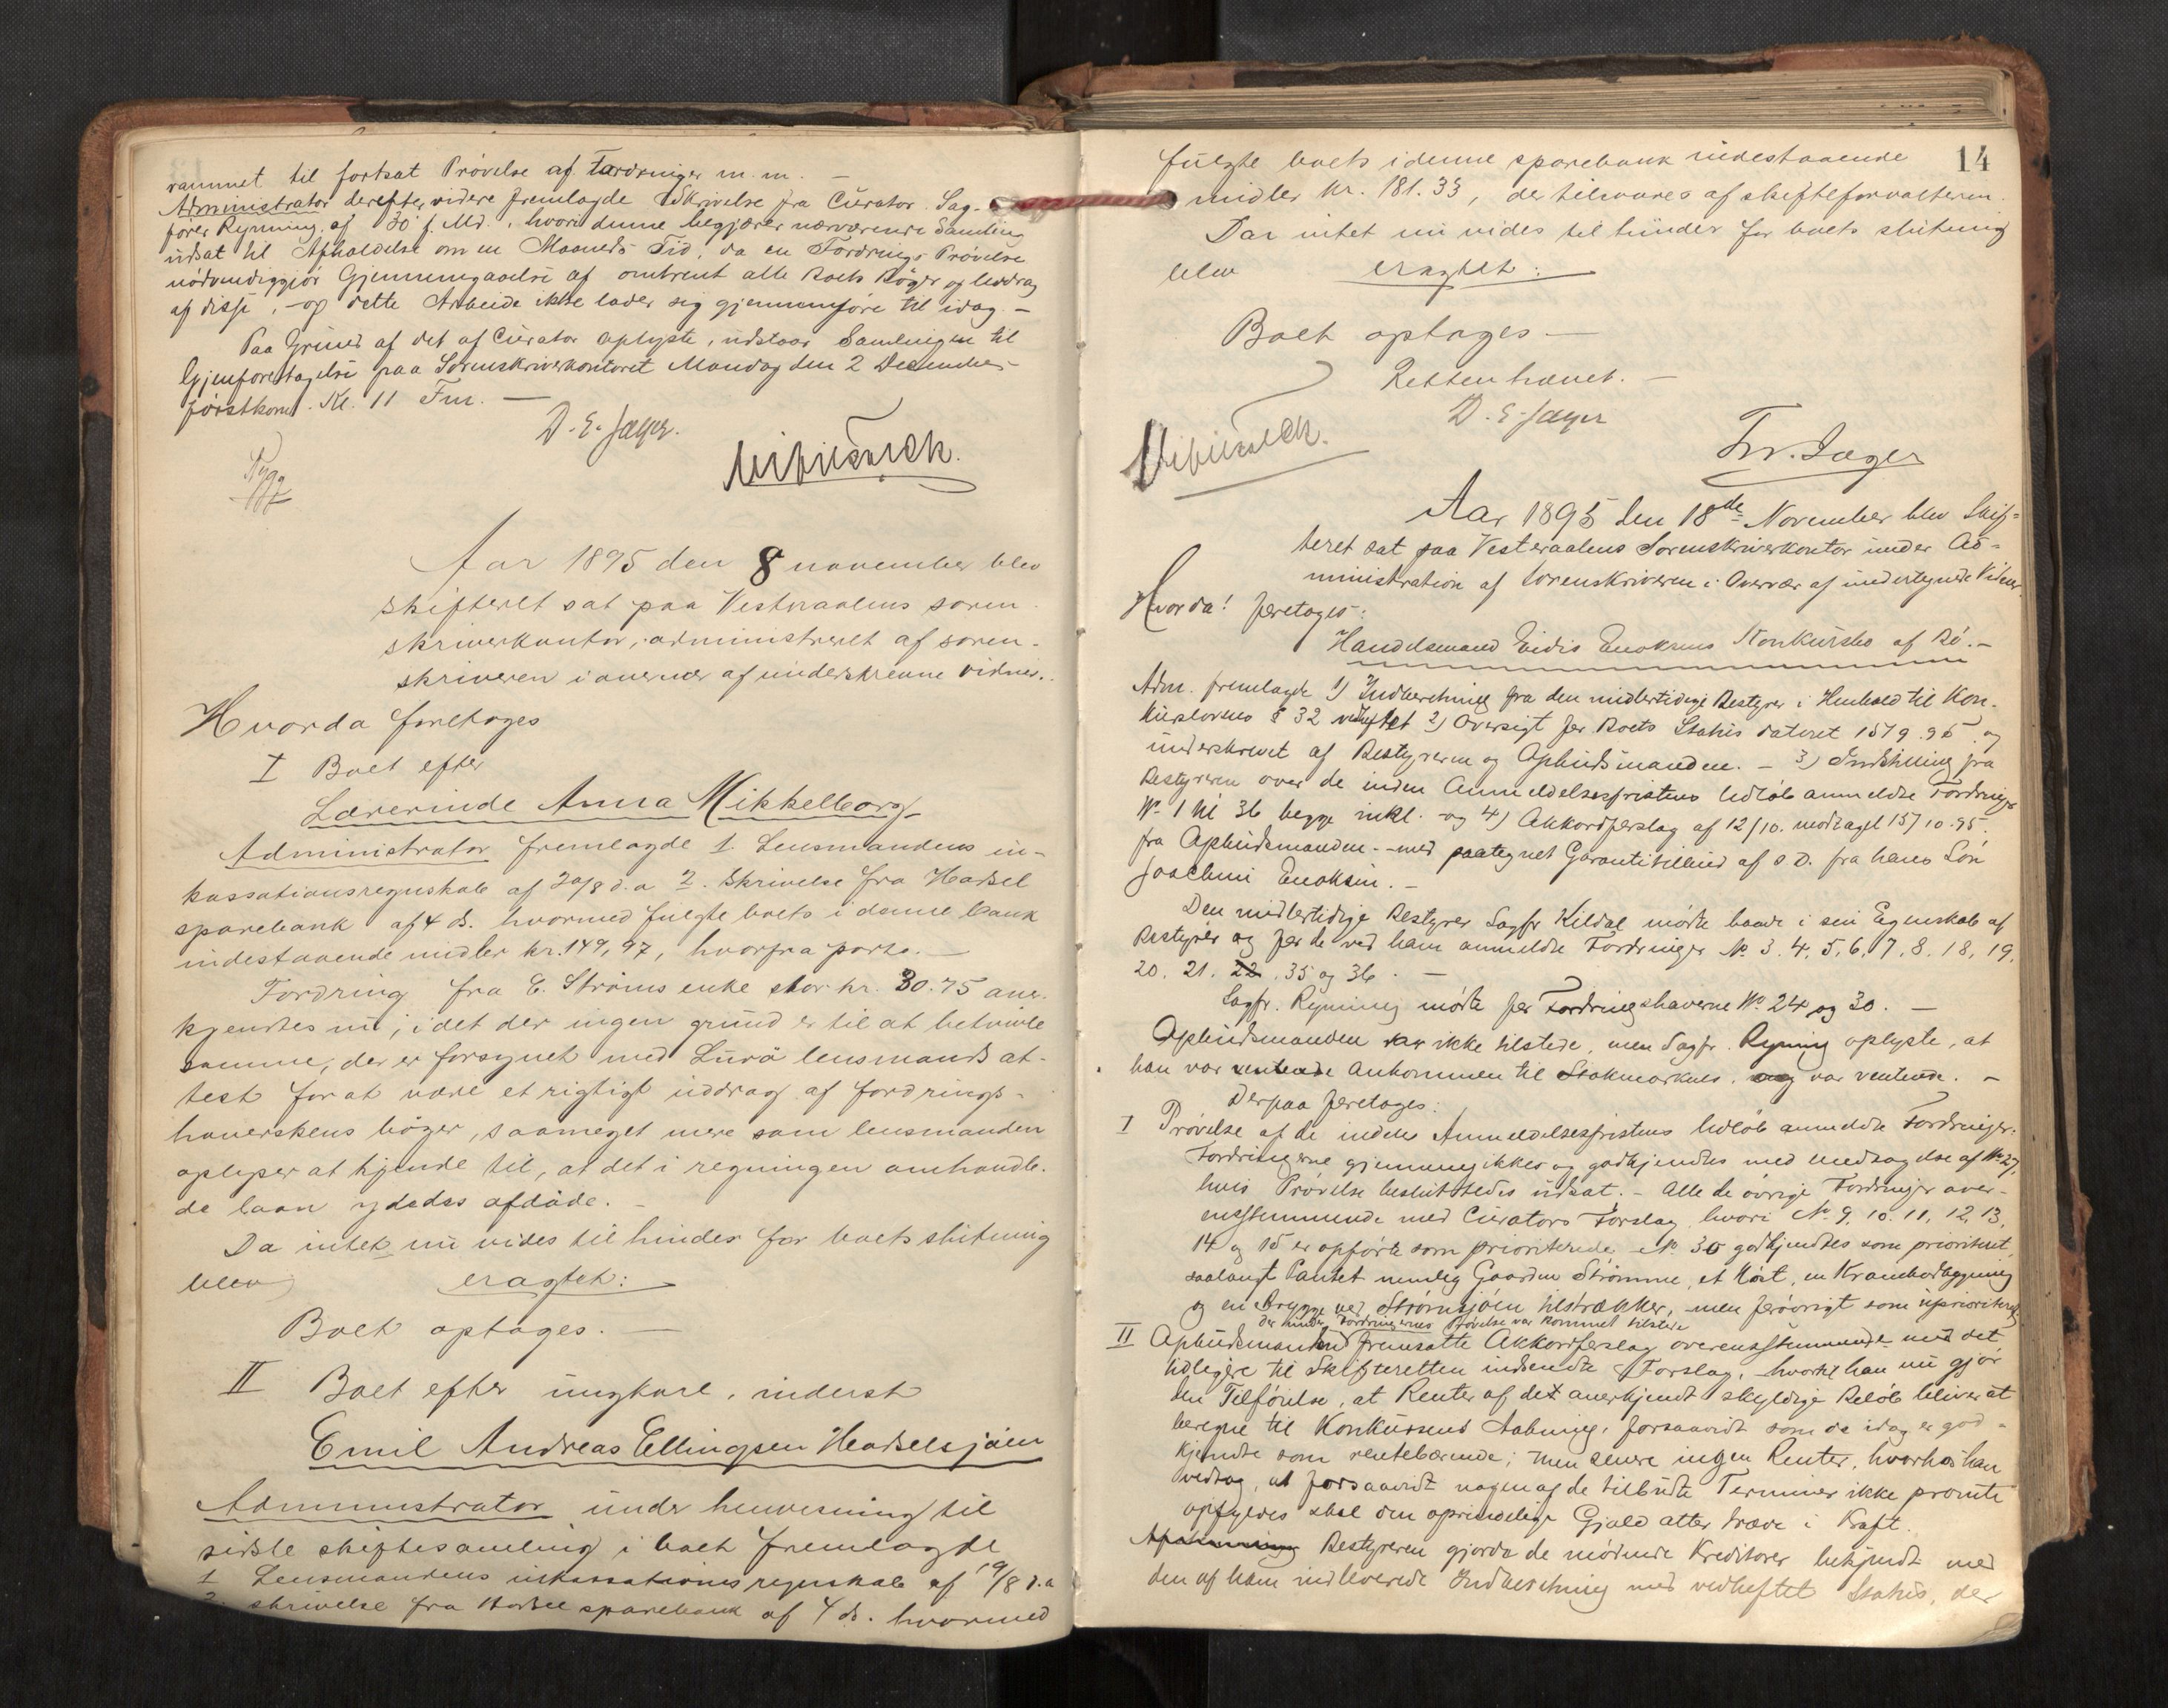 rammet til fortsat Prøvelse af Fordringer m. m. –
Administrator derefter videre fremlagde Skrivelse fra Curator Sag-
fører Rynning af 30 f. Md., hvori denne begjærer nærværende Samling
udsat til Afholdelse om en Maaneds Tid, da en Fordrings Prøvelse
nødvendiggjør Gjennemgaaelse af omtrent alle Boets Bøger og Uddrag
af disse, – og dette Arbeide ikke lader sig gjennemføre til idag. –
Paa Grund af det af Curator oplyste, udstaar Samlingen til
Gjenforetagelse paa Sorenskriverkontoret Mandag den 2 December
førstkom. Kl. 11 Fm. —
D. E. Jæger.
Aar 1895 den 8 november blev
skifteret sat paa Vesteraalens soren-
skriverkontor, administreret af soren-
skriveren i overvær af underskrevne vidner.
Hvorda foretoges
I Boet efter
Lærerinde Anna Mikkelborg
Administrator fremlagde 1. Lensmandens in-
kassationsregnskab af 20/8 d. a 2. skrivelse fra Hadsel
sparebank af 4 ds. hvormed fulgte boets i denne bank
indestaaende midler kr. 149,97, hvorfra porto. —
Fordring fra E. Strøms enke stor kr. 30.75 aner-
kjendtes nu, idet der ingen grund er til at betvivle
samme, der er forsynet med Lurö lensmands at-
test for at være et rigtigt uddrag af fordrings-
haverskens bøger, saameget mere som lensmanden
oplyser at kjende til, at det i regningen omhandle-
de laan ydedes afdøde. –
Da intet nu vides til hinder for boets slutning
blev eragtet:
Boet optages. —
II Boet efter ungkarl, inderst
Emil Andreas Ellingsen Hadselsjøen
Administrator under henvisning til
sidste skiftesamling i boet fremlagde
1 Lensmandens inkassationsregnskab af 19/8 d. a
2. skrivelse fra Hadsel sparebank af 4 ds. hvormed
14
fulgte boets i denne sparebank indestaaende
midler kr. 181.33, der tilvares af skifteforvalteren.
Da intet nu vides til hinder for boets slutning
blev eragtet:
Boet optages —
Retten hævet. —
D. E. Jæger
Fr. Jæger
Aar 1895 den 18de November blev Skif-
teret sat paa Vesteraalens Sorenskriverkontor under Ad-
ministration af Sorenskriveren i Overvær af undertegnede Vidner.
Hvorda! foretoges:
Handelsmand Eidis Enoksens Konkursbo af Bø. –
Adm. fremlagde 1) Indberetning fra den midlertidige Bestyrer i Henhold til Kon-
kurslovens § 32 vedheftet 2) Oversigt for Boets Status dateret 15/9 95 og
underskrevet af Bestyreren og Opbudsmanden. – 3) Indstilling fra
Bestyreren over de inden Anmeldelsesfristens Udløb anmeldte Fordringer
No 1 til 36 begge inkl. og 4) Akkordforslag af 12/10. modtaget 15/10 95.
fra Opbudsmanden – med paategnet Garantitilbud af s. D. fra hans Søn
Joachim Enoksen. –
Den midlertidige Bestyrer Sagfr Kildal mødte baade i sin Egenskab af
Bestyrer og for de ved ham anmeldte Fordringer No 3. 4. 5. 6. 7. 8. 18. 19.
20. 21. 22. 35 og 36. –
Sagfr. Rynning mødte for Fordringshaverne No 24 og 30. –
Opbudsmanden var ikke tilstede, men Sagfr. Rynning oplyste, at
han var ventende Ankommen til Stokmarknes. og var ventende. –
Derpaa foretoges:
I Prøvelse af de inden Anmeldelsesfristens Udløb anmeldte Fordringer.
Fordringerne gjennemgikkes og godkjendtes med Undtagelse af No 27,
hvis Prøvelse besluttedes udsat. – Alle de øvrige Fordringer over-
ensstemmende med Curators Forslag, hvori No 9. 10. 11. 12. 13.
14 og 15 er opførte som prioriterede. No 30 godkjendtes som prioriteret,
saalangt Pantet nemlig Gaarden Strømme, et Nøst, en Krambodbygning
og en Brygge ved Strømsjøen tilstrækker, men forøvrigt som uprioriteret.
der under Fordringernes Prøvelse var kommet tilstede
II Opbudsmanden fremsatte Akkordforslag overensstemmende med det
tidligere til Skifteretten indsendte Forslag, hvortil han nu gjør
den Tilføielse, at Renter af det anerkjendt skyldige Beløb bliver at
beregne til Konkursens Aabning, forsaavidt som de idag er god-
kjendte som rentebærende; men senere ingen Renter, hvorhos han
vedtog, at forsaavidt nogen af de tilbudte Terminer ikke promte
opfyldes skal den oprindelige Gjæld atter træde i Kraft.
Bestyreren gjorde de mødende Kreditorer bekjendt med
den af ham indleverede Indberetning med vedheftet Status, der